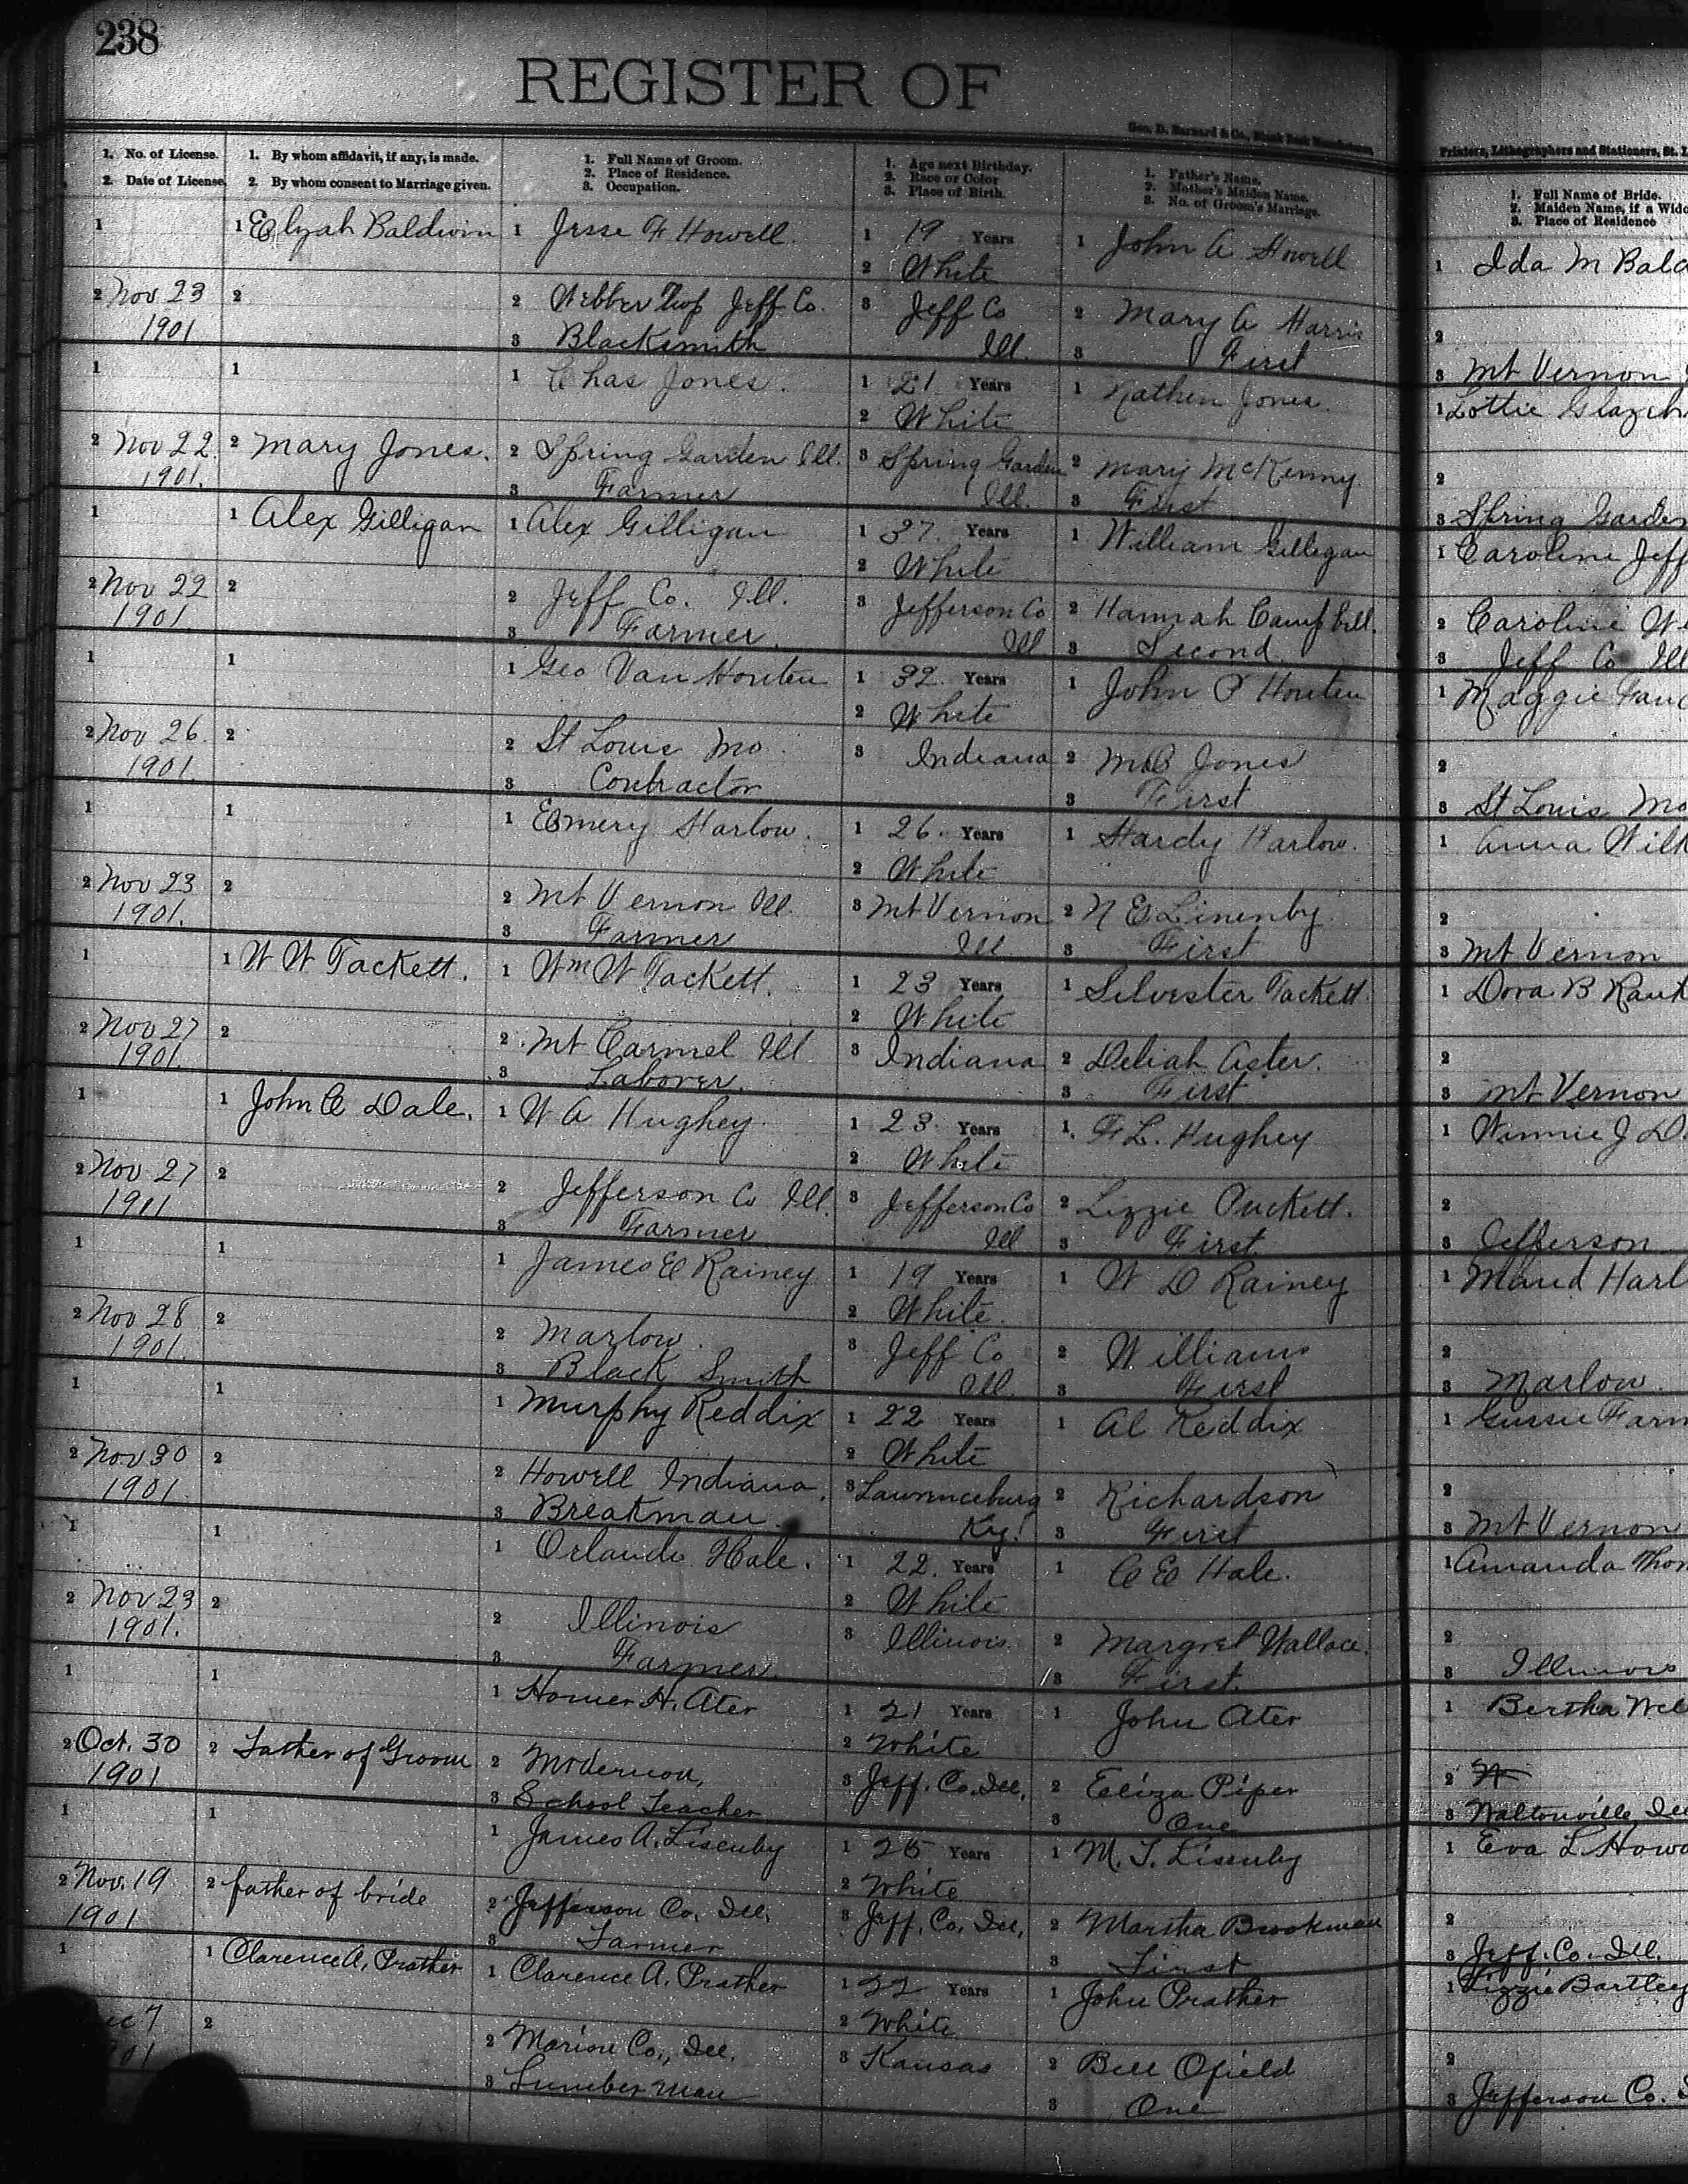 238
REGISTER OF
Geo. D. Barnard & Co., Blank Book Manufacturers,
Printers, Lithographers and Stationers, St. L
1. No. of License.
2. Date of License.
1. By whom affidavit, if any, is made.
2. By whom consent to Marriage given.
1. Full Name of Groom.
2. Place of Residence.
3. Occupation.
1. Age next Birthday.
2. Race or Color
3. Place of Birth.
1. Father's Name.
2. Mother's Maiden Name.
3. No. of Groom's Marriage.
1. Full Name of Bride.
2. Maiden Name, if a Wido
3. Place of Residence
1
2 Nov 23
1901
1 Elijah Baldwin
2
1 Jesse F Howell
2 Webber Twp Jeff Co.
3 Blacksmith
1 19 Years
2 White
3 Jeff Co
Ill.
1 John A Howell
2 Mary A Harris
3 First
1 Ida M Bald
2
3 Mt Vernon
1
2 Nov 22.
1901.
1
2 Mary Jones.
1 Chas Jones.
2 Spring Garden Ill.
3 Farmer
1 21 Years
2 White
3 Spring Garden
Ill.
1 Nathen Jones.
2 Mary McKenny.
3 First
1 Lottie Glazeb
2
3 Spring Garden
1
2 Nov 22
1901
1 Alex Gilligan
2
1 Alex Gilligan
2 Jeff Co. Ill.
3 Farmer.
1 37. Years
2 White
3 Jefferson Co
Ill
1 William Gilligan
2 Hannah Campbell.
3 Second.
1 Caroline Jeff
2 Caroline We
3 Jeff Co Ill
1
2 Nov 26.
1901.
1
2
1 Geo Van Houten
2 St Louis Mo.
3 Contractor
1 32. Years
2 White
3 Indiana
1 John P Houten
2 Jones
3 First
1 Maggie Fau
2
3 St Louis Mo
1
2 Nov 23
1901.
1
2
1 Emery Harlow.
2 Mt Vernon Ill.
3 Farmer
1 26. Years
2 White
3 Mt Vernon
Ill
1 Hardy Harlow.
2 N E Linenby.
3 First
1 Anna Wilk
2
3 Mt Vernon
1
2 Nov 27
1901.
1 W W Tackett.
2
1 Wm W Tackett.
2 Mt Carmel Ill
3 Laborer.
1 23 Years
2 White
3 Indiana
1 Silvester Tackett.
2 Deliah Aster.
3 First
1 Dora B Rau
2
3 Mt Vernon
1
2 Nov 27
1911
1 John C Dale.
2
1 W A Hughey.
2 Jefferson Co Ill.
3 Farmer
1 23. Years
2 White
3 Jefferson Co
Ill
1 F L. Hughey
2 Lizzie Puckett.
3 First.
1 Winnie J D
2
3 Jefferson
1
2 Nov 28
1901.
1
2
1 James E Rainey
2 Marlow.
3 Black Smith
1 19 Years
2 White.
3 Jeff Co
Ill.
1 W D Rainey
2 Williams
3 First
1 Maud Harl
2
3 Marlow.
1
2 Nov 30
1901.
1
2
1 Murphy Reddix
2 Howell Indiana.
3 Breakman.
1 22 Years
2 White
3 Lawrenceburg
Ky.
1 Al Reddix
2 Richardson
3 First
1 Gussie Farm
2
3 Mt Vernon
1
2 Nov 23
1901.
1
2
1 Orlando Hale.
2 Illinois
3 Farmer.
1 22. Years
2 White
3 Illinois.
1 C E Hale.
2 Margret Wallace.
3 First.
1 Amanda Thom
2
3 Illinois
1
2 Oct. 30
1901
1
2 Father of Groom
1 Homer H. Ater
2 McVernon,
3 School Teacher
1 21 Years
2 White
3 Jeff. Co. Ill.
1 John Ater
2 Eliza Piper
3 One
1 Bertha Wel
2
3 Waltonville Ill
1
2 Nov. 19
1901
1
2 father of bride
1 James A. Lisenby
2 Jefferson Co. Ill.
3 Farmer
1 25 Years
2 White
3 Jeff. Co. Ill.
1 M. T. Lisenby
2 Martha Brookman
3 First
1 Eva L. Howa
2
3 Jeff. Co. Ill.
1
1 Clarence A. Prather
2
1 Clarence A. Prather
2 Marion Co., Ill.
3 Lumber Man
1 22 Years
2 White
3 Kansas
1 John Prather
2 Bell Ofield
3 One
1 Lizzie Bartley
2
3 Jefferson Co.